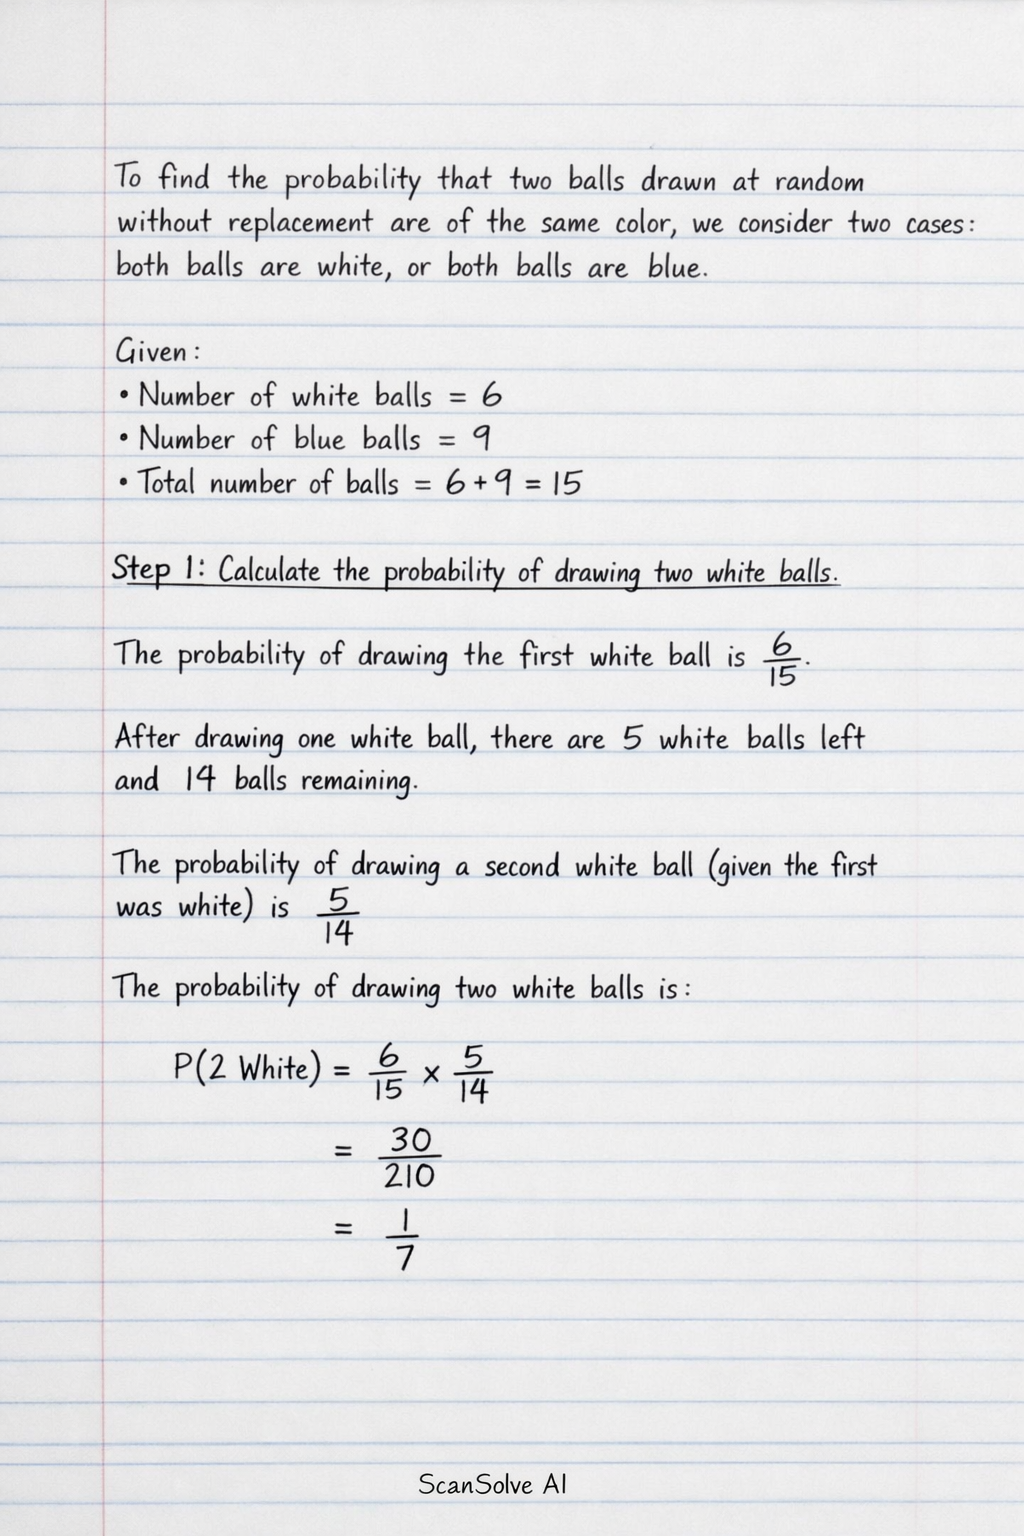 To find the probability that two balls drawn at random
without replacement are of the same color, we consider two cases:
both balls are white, or both balls are blue.
Given:
• Number of white balls = 6
• Number of blue balls = 9
• Total number of balls = 6 + 9 = 15
Step 1: Calculate the probability of drawing two white balls.
The probability of drawing the first white ball is 6/15.
After drawing one white ball, there are 5 white balls left
and 14 balls remaining.
The probability of drawing a second white ball (given the first
was white) is 5/14
The probability of drawing two white balls is:
P(2 White) = 6/15 × 5/14
= 30/210
= 1/7
ScanSolve AI